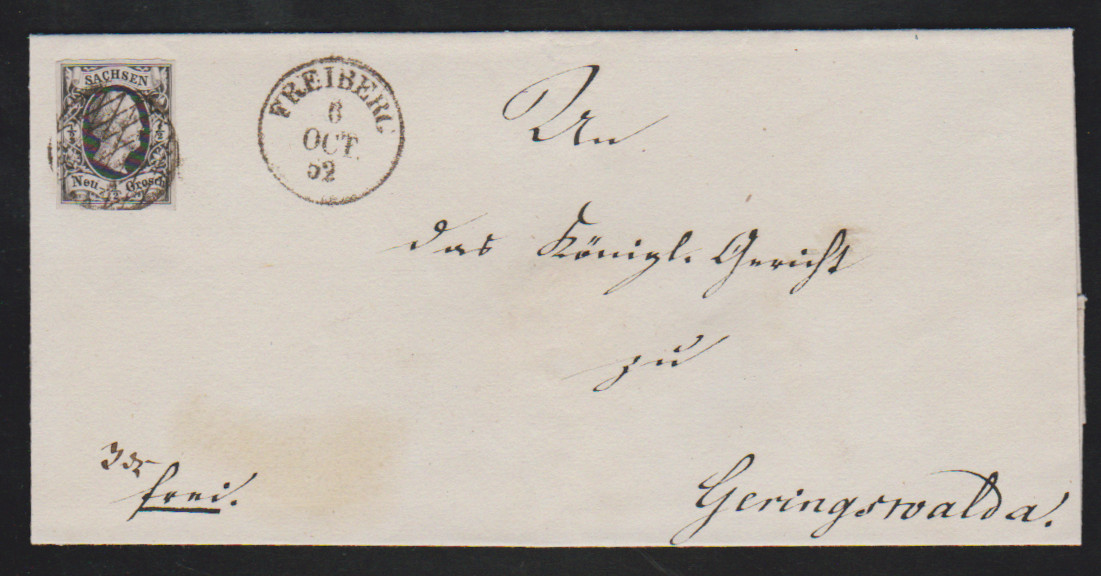 SACHSEN
½ ½
Neu- Grosch
½
FREIBERG
6
OCT.
52
An
das Königl. Gericht
zu
Geringswalda.
frei.